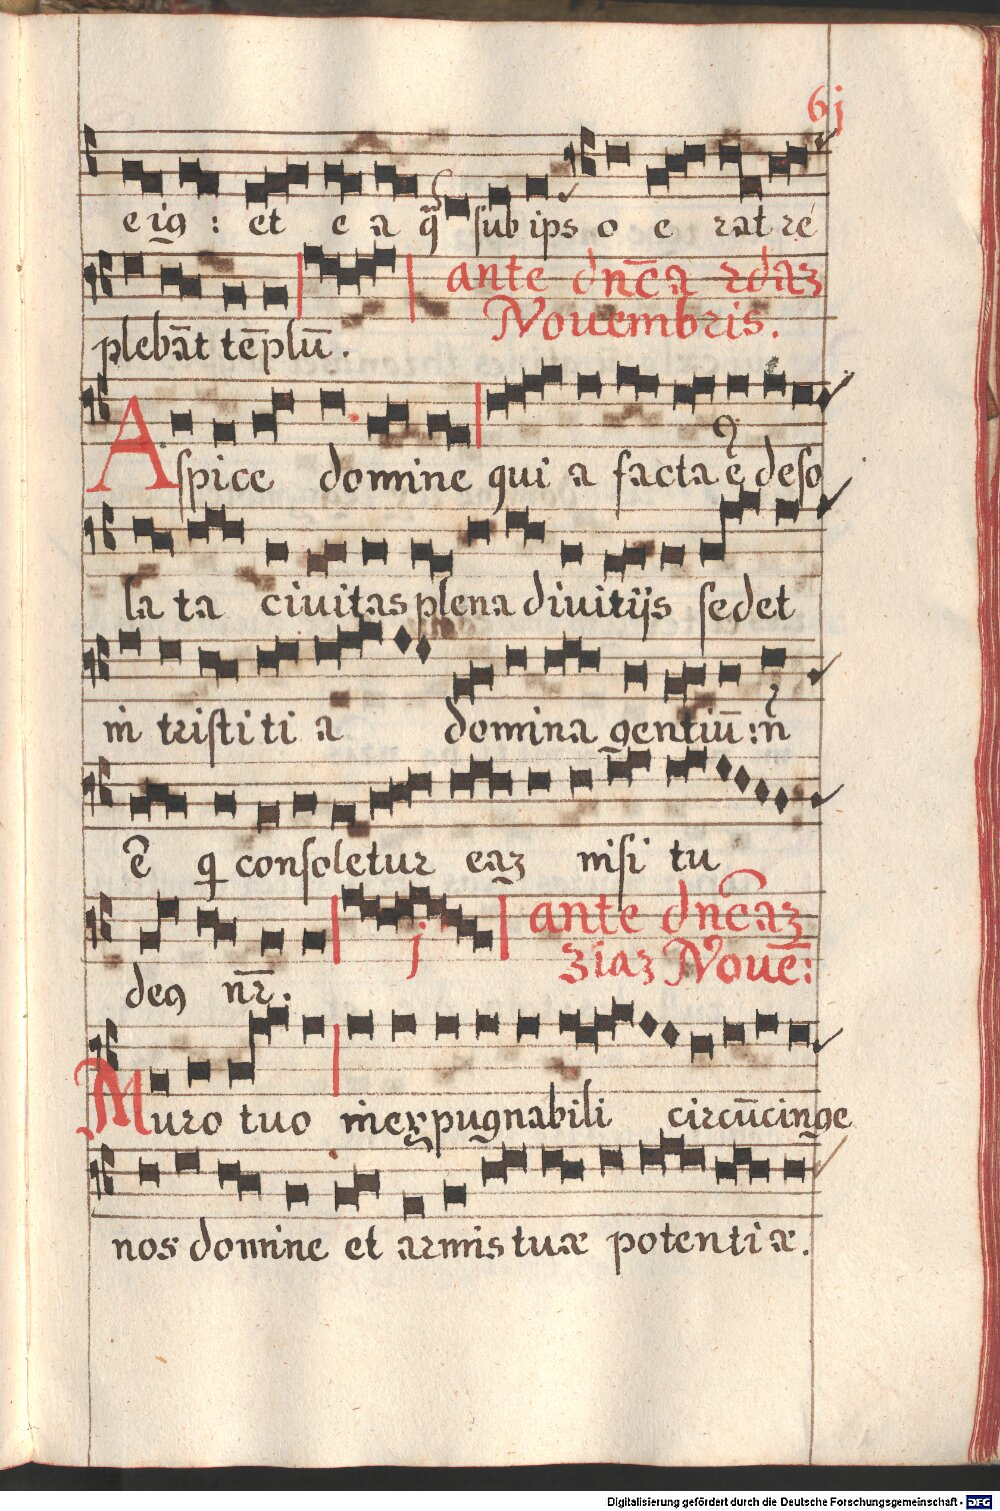 6j
eiꝯ : et e a q̃ sub ips o e rat re
plebāt tēplū.
ante dn̄cā 2dāꝫ
Nouembris.
Aspice domine qui a facta ē deso
la ta ciuitas plena diuitijs sedet
in tristi ti a domina gentiū : n̄
ē q consoletur eaꝫ nisi tu
deꝯ nr̄.
ante dn̄cāꝫ
3iaꝫ Nouē:
Muro tuo inexpugnabili circūcinge
nos domine et armis tuæ potentiæ.
Digitalisierung gefördert durch die Deutsche Forschungsgemeinschaft - DFG